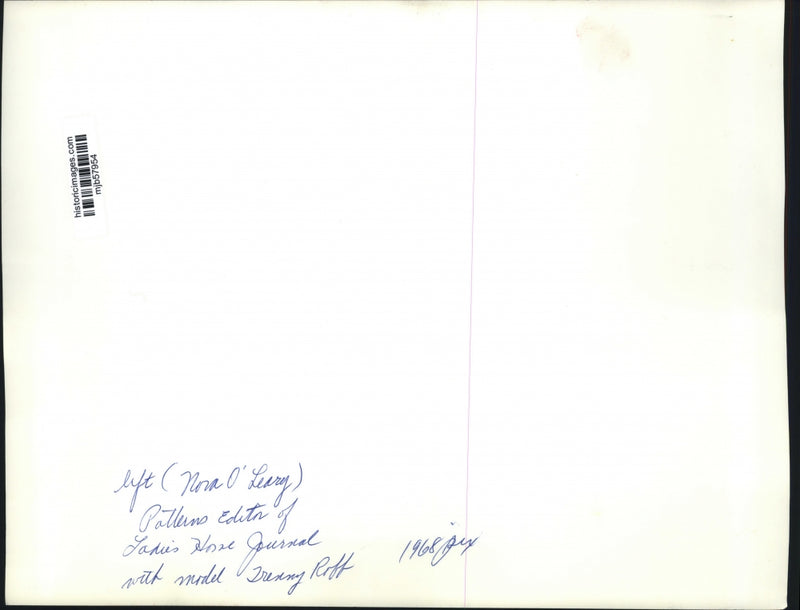 historicimages.com
mjb57954
left (Nora O'Leary)
Patterns Editor of
Ladies Home Journal
with model Trenny Roff
1968